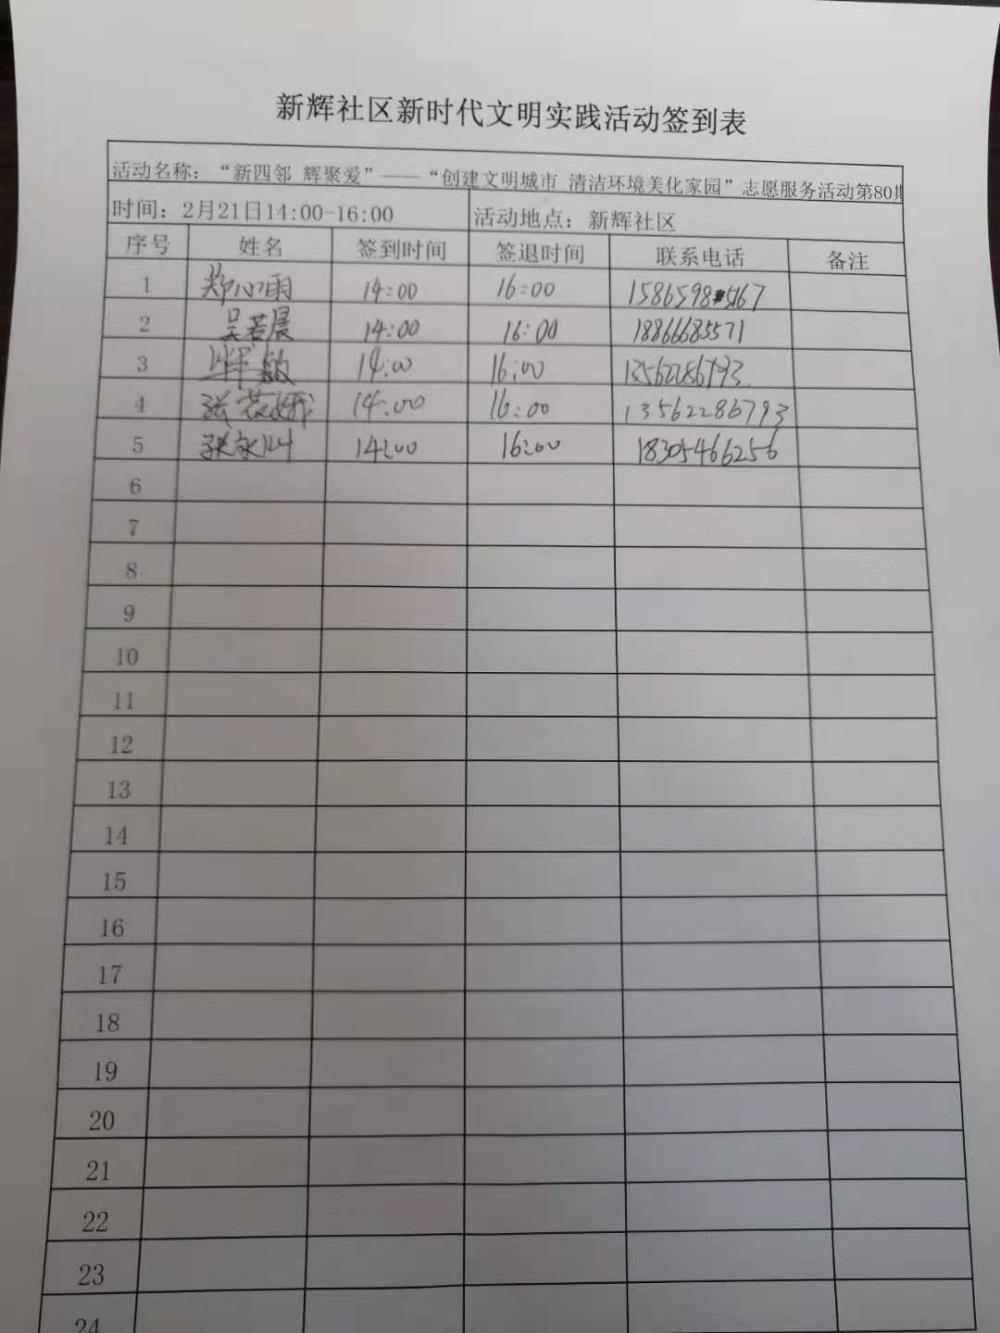 新辉社区新时代文明实践活动签到表
活动名称：“新四邻 辉聚爱”——“创建文明城市 清洁环境美化家园”志愿服务活动第80期
时间：2月21日14:00-16:00 活动地点：新辉社区
序号 姓名 签到时间 签退时间 联系电话 备注
1 郑心雨 14:00 16:00
2 吴若晨 14:00 16:00 18866685571
3 14:00 16:00
4 张 14:00 16:00 13562286793
5 张 14:00 16:00 18305466256
6
7
8
9
10
11
12
13
14
15
16
17
18
19
20
21
22
23
24